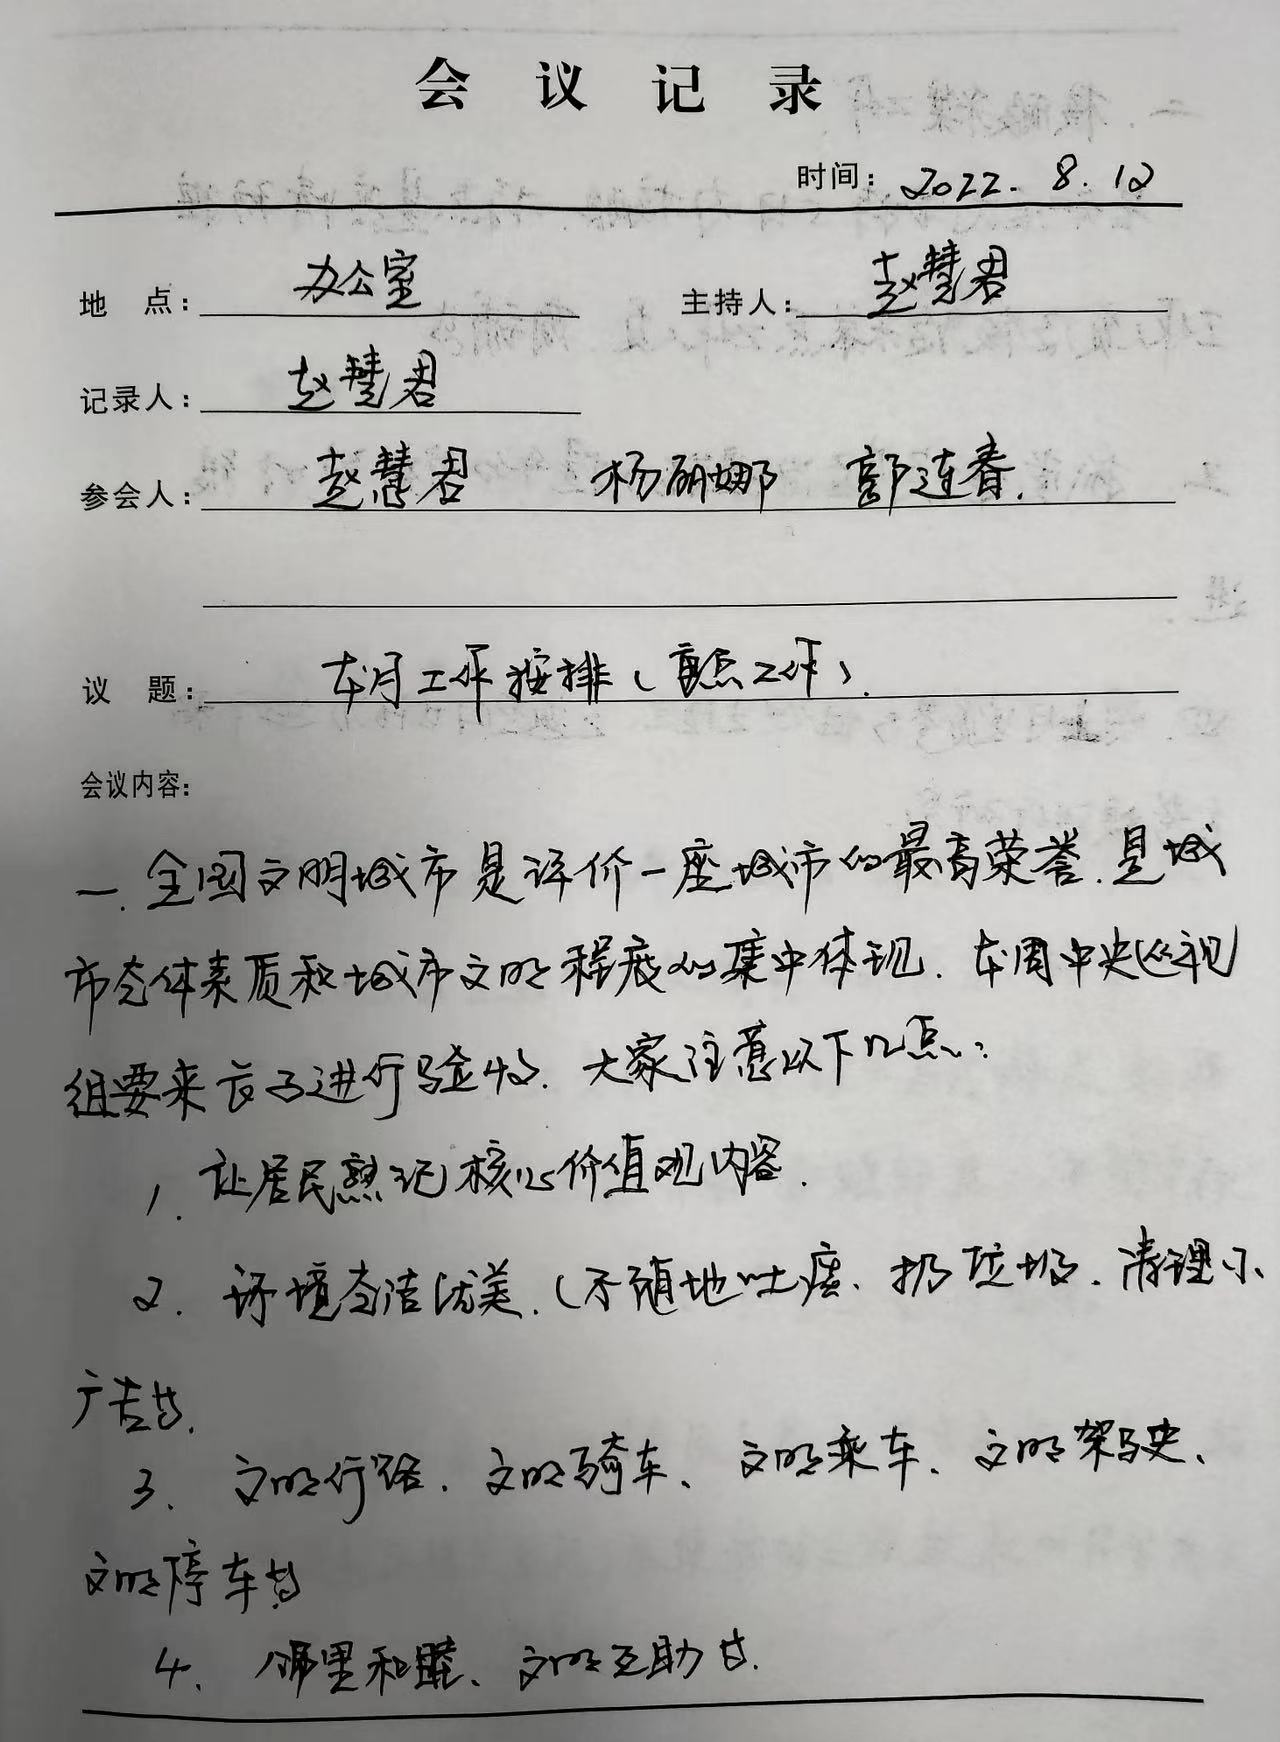 会议记录
时间：2022.8.12
地 点：办公室 主持人：赵慧君
记录人：赵慧君
参会人：赵慧君 杨丽娜 郭连春.
议 题：本月工作按排（重点工作）.
会议内容：
一.全国文明城市是评价一座城市的最高荣誉.是城
市全体素质和城市文明程度的集中体现.本周中央巡视
组要来长子进行验收.大家注意以下几点：
1.让居民熟记核心价值观内容.
2.环境全洁优美.（不随地吐痰、扔垃圾.清理小
广告等.
3.文明行路.文明骑车、文明乘车、文明驾驶、
文明停车等
4.邻里和睦、文明互助等.